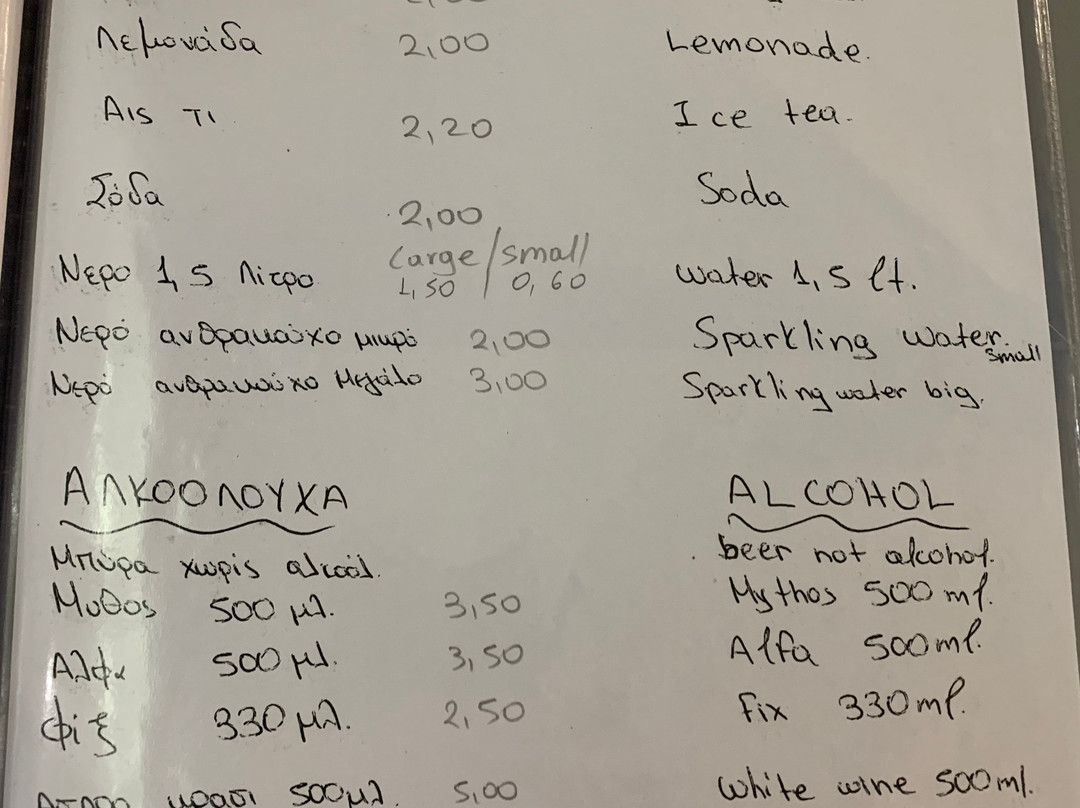 Λεμονάδα 2,00 Lemonade.
Αις τι 2,20 Ice tea.
Σόδα 2,00 Soda
Large/small
Νερο 1,5 Λίτρο 1,50 / 0,60 water 1,5 lt.
Νερό ανθρακούχο μικρό 2,00 Sparkling water. small
Νερό ανθρακούχο Μεγάλο 3,00 Sparkling water big.
ΑΛΚΟΟΛΟΥΧΑ ALCOHOL
Μπύρα χωρίς αλκοόλ. beer not alcohol.
Μυθος 500 μλ. 3,50 Mythos 500 ml.
Αλφα 500 μλ. 3,50 Alfa 500ml.
Φιξ 330 μλ. 2,50 Fix 330ml.
κρασι 500μλ. 5,00 White wine 500ml.